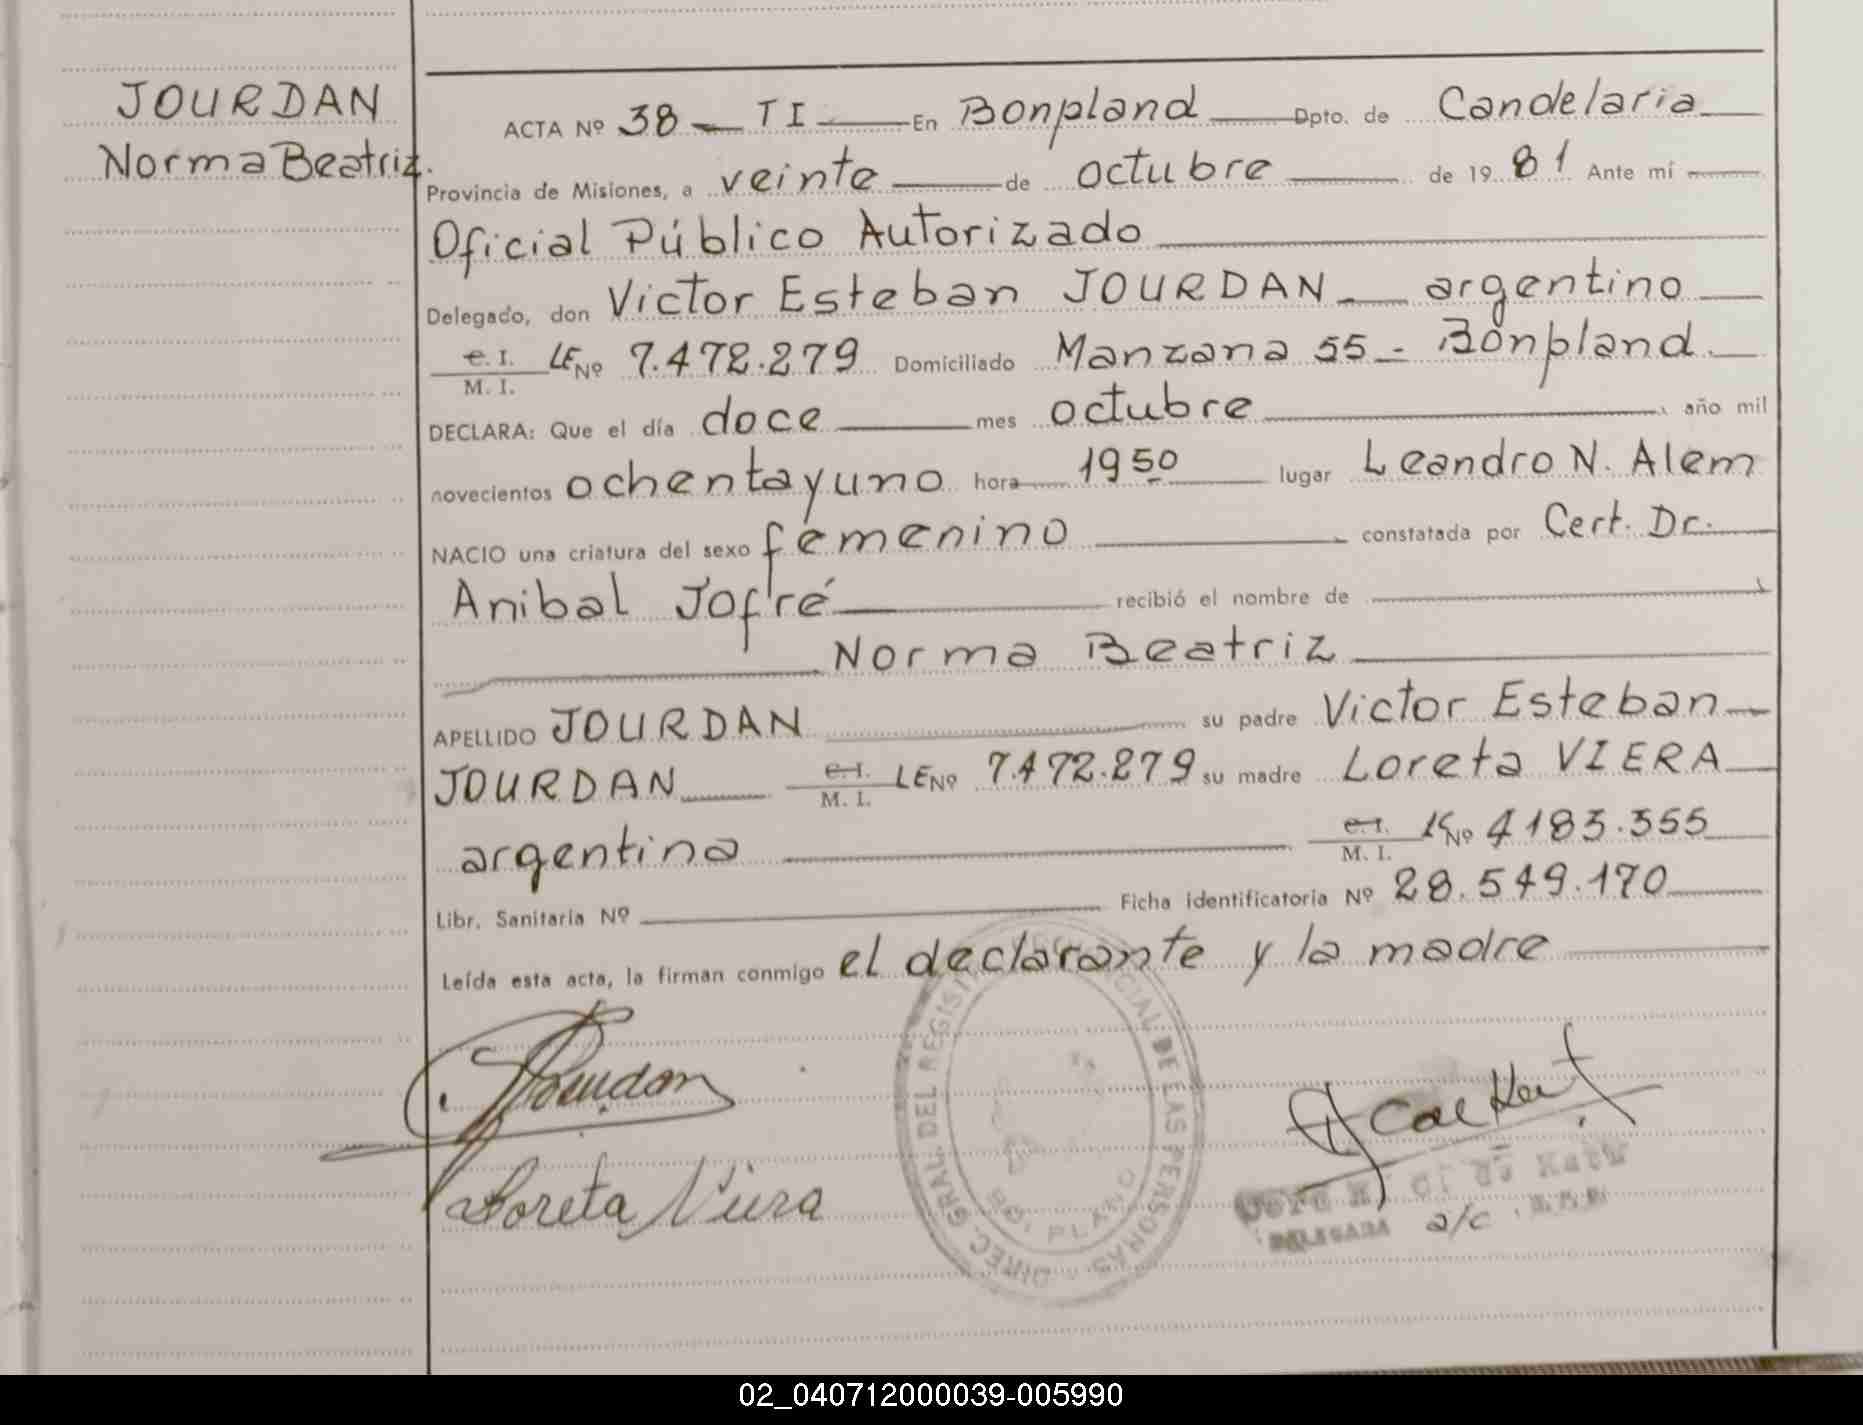 JOURDAN
Norma Beatriz.
ACTA Nº 38 - T I - En Bonpland Dpto. de Candelaria
Provincia de Misiones, a veinte de octubre de 19 81 Ante mí
Oficial Público Autorizado
Delegado, don Victor Esteban JOURDAN argentino
C. I. / M. I. LE Nº 7.472.279 Domiciliado Manzana 55 - Bonpland.
DECLARA: Que el día doce mes octubre, año mil
novecientos ochentayuno hora 19 50 lugar Leandro N. Alem
NACIO una criatura del sexo femenino constatada por Cert. Dr.
Anibal Jofré recibió el nombre de
Norma Beatriz
APELLIDO JOURDAN su padre Victor Esteban
JOURDAN C. I. / M. I. LE Nº 7.472.279 su madre Loreta VIERA
argentina C. I. / M. I. Nº 4183.355
Libr. Sanitaria Nº Ficha identificatoria Nº 28.549.170
Leída esta acta, la firman conmigo el declarante y la madre
Jourdan
Loreta Viera
DIREC. GRAL. DEL REGIST PROVINCIAL DE LAS PERSONAS
BO. PLAND
DELEGADA a/c
02_040712000039-005990